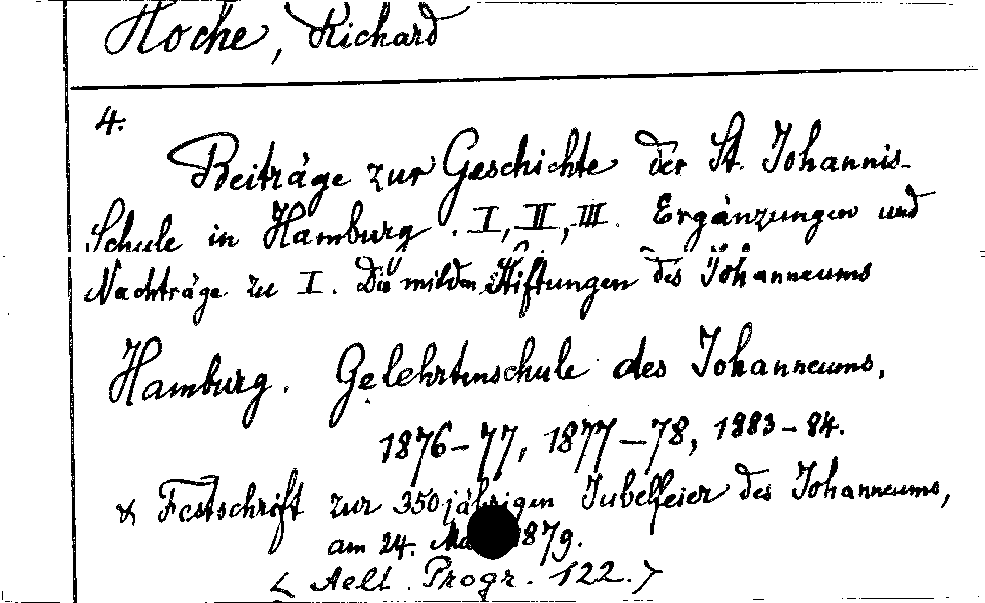 Hoche, Richard
4.
Beiträge zur Geschichte der St. Johannis-
Schule in Hamburg. I, II, III. Ergänzungen und
Nachträge zu I. Die milden Stiftungen des Johanneums
Hamburg. Gelehrtenschule des Johanneums,
1876-77, 1877-78, 1883-84.
& Festschrift zur 350jährigen Jubelfeier des Johanneums,
am 24. 1879.
< Aelt. Progr. 122.>